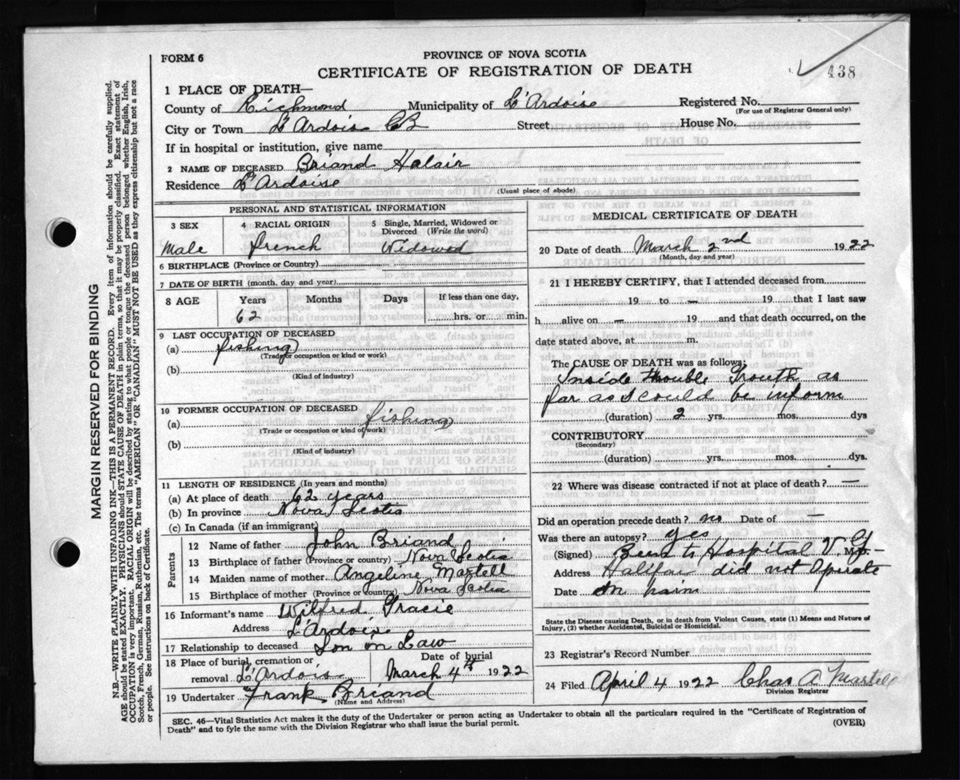 438
FORM 6
PROVINCE OF NOVA SCOTIA
CERTIFICATE OF REGISTRATION OF DEATH
MARGIN RESERVED FOR BINDING
N.B.—WRITE PLAINLY WITH UNFADING INK—THIS IS A PERMANENT RECORD. Every item of information should be carefully supplied.
AGE should be stated EXACTLY. PHYSICIANS should STATE CAUSE OF DEATH in plain terms, so that it may be properly classified. Exact statement of
OCCUPATION is very important. RACIAL ORIGIN will be described by stating to what people or tongue the deceased person belonged whether English, Irish,
Scotch, French, German, Russian, Ruthenian, etc. The terms "AMERICAN" or "CANADIAN" MUST NOT BE USED as they express citizenship but not a race
or people. See instructions on back of Certificate.
1 PLACE OF DEATH—
County of Richmond Municipality of L'Ardoise Registered No.
(For use of Registrar General only)
City or Town L'Ardoise CB Street House No.
If in hospital or institution, give name
2 NAME OF DECEASED Briand Halair
Residence L'Ardoise
(Usual place of abode)
PERSONAL AND STATISTICAL INFORMATION
3 SEX 4 RACIAL ORIGIN 5 Single, Married, Widowed or Divorced (Write the word)
Male french Widowod
6 BIRTHPLACE (Province or Country)
7 DATE OF BIRTH (month, day and year)
8 AGE Years Months Days If less than one day,
62 hrs. or min.
9 LAST OCCUPATION OF DECEASED
(a) fishing
(Trade or occupation or kind or work)
(b)
(Kind of industry)
10 FORMER OCCUPATION OF DECEASED
(a) fishing
(Trade or occupation or kind of work)
(b)
(Kind of industry)
11 LENGTH OF RESIDENCE (In years and months)
(a) At place of death 62 years
(b) In province Nova Scotia
(c) In Canada (if an immigrant)
Parents
12 Name of father John Briand
13 Birthplace of father (Province or country) Nova Scotia
14 Maiden name of mother Angeline Martell
15 Birthplace of mother (Province or country) Nova Scotia
16 Informant's name Wilfred Gracie
Address L'Ardoise
17 Relationship to deceased Son on Law
18 Place of burial, cremation or removal L'Ardoise Date of burial March 4th 1922
19 Undertaker Frank Briand
(Name and Address)
MEDICAL CERTIFICATE OF DEATH
20 Date of death March 2nd 1922
(Month, day and year)
21 I HEREBY CERTIFY, that I attended deceased from
19 to — 19 that I last saw
h alive on — 19 and that death occurred, on the
date stated above, at m.
The CAUSE OF DEATH was as follows:
Inside trouble Grouth as
far as I could be inform
(duration) 2 yrs. mos. dys
CONTRIBUTORY
(Secondary)
(duration) yrs. mos. dys.
22 Where was disease contracted if not at place of death? —
Did an operation precede death? no Date of —
Was there an autopsy? yes
(Signed) Been to Hospital V. G. M.D.
Address Halifax did not Opriate
Date on haim
State the Disease causing Death, or in death from Violent Causes, state (1) Means and Nature of
Injury, (2) whether Accidental, Suicidal or Homicidal.
23 Registrar's Record Number
24 Filed April 4 1922 Chas A Martell
Division Registrar
SEC. 46—Vital Statistics Act makes it the duty of the Undertaker or person acting as Undertaker to obtain all the particulars required in the "Certificate of Registration of
Death" and to fyle the same with the Division Registrar who shall issue the burial permit.
(OVER)